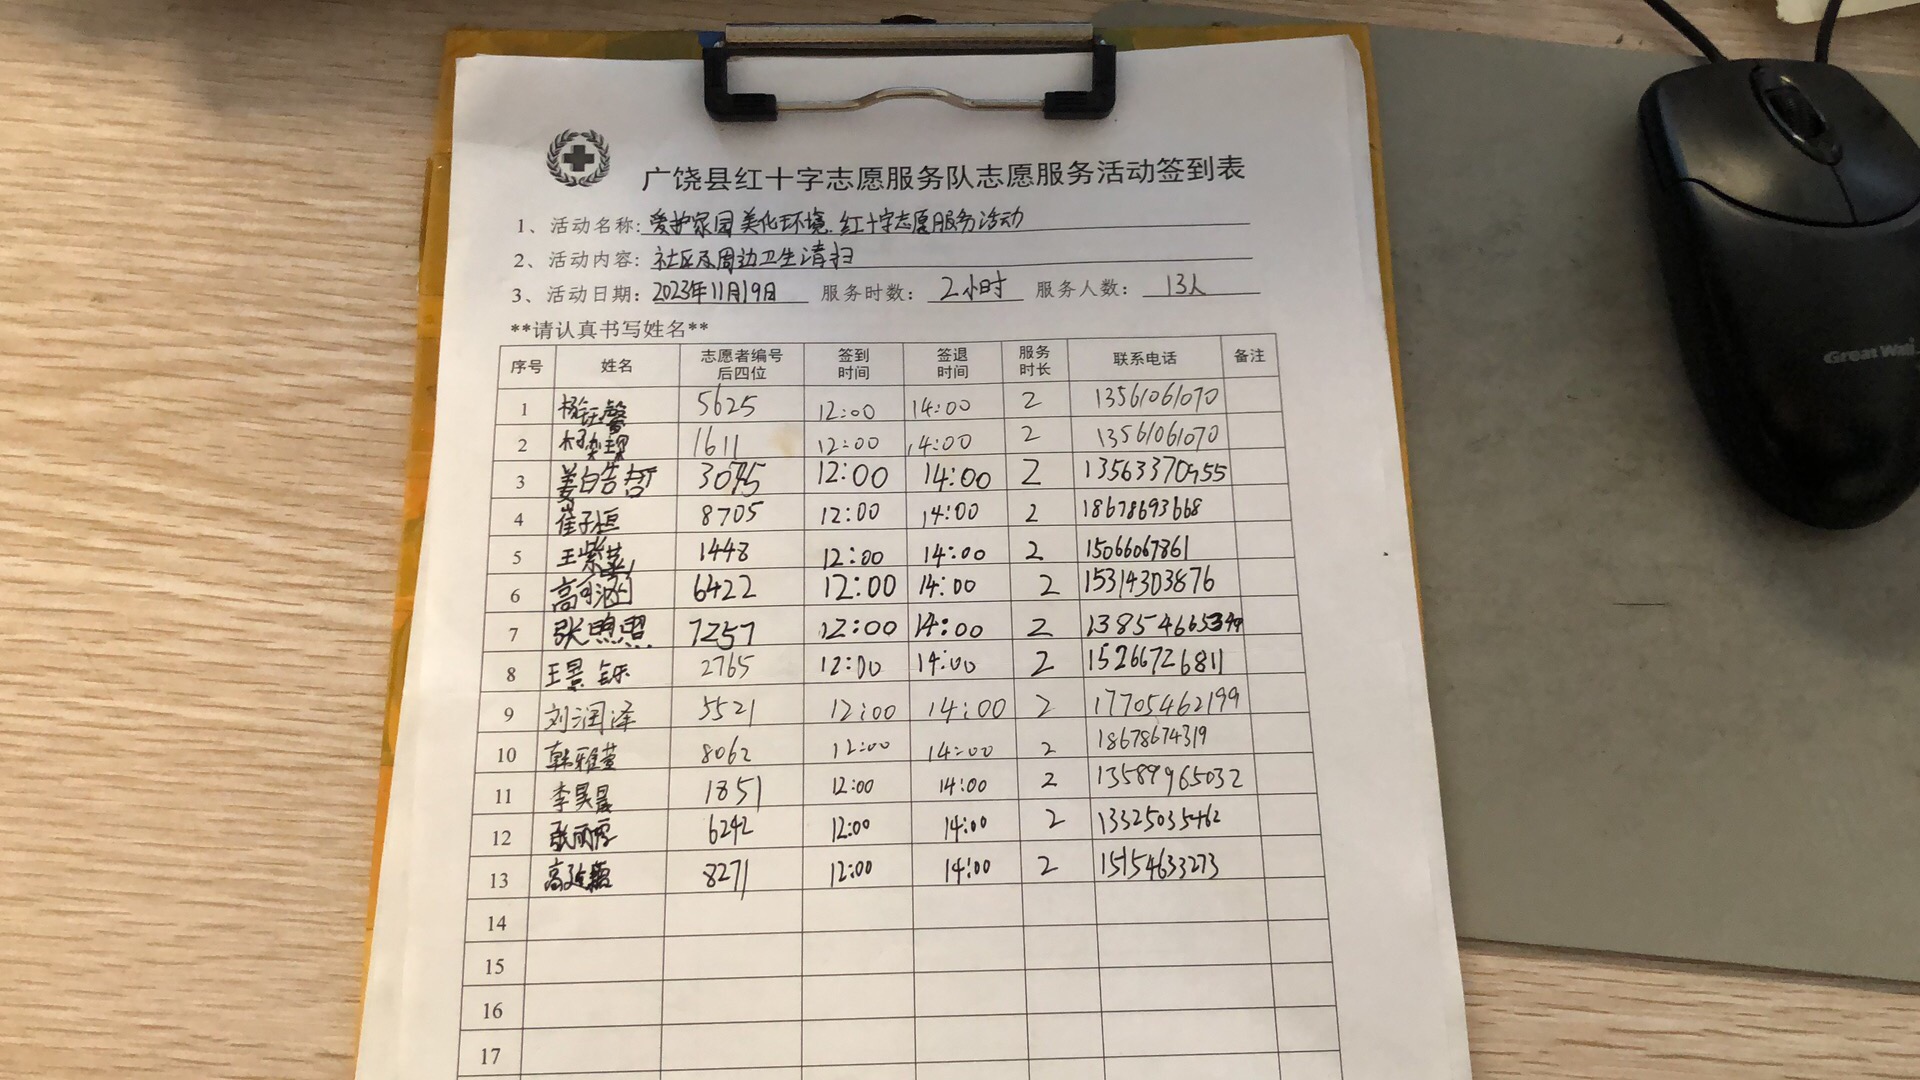 广饶县红十字志愿服务队志愿服务活动签到表
1、活动名称: 爱护家园 美化环境 红十字志愿服务活动
2、活动内容: 社区及周边卫生清扫
3、活动日期: 2023年11月19日 服务时数: 2小时 服务人数: 13人
**请认真书写姓名**
序号 姓名 志愿者编号后四位 签到时间 签退时间 服务时长 联系电话 备注
1 5625 12:00 14:00 2 13561061070
2 1611 12:00 14:00 2 13561061070
3 12:00 14:00 2 13563370955
4 崔子恒 8705 12:00 14:00 2 18678693668
5 王紫 1448 12:00 14:00 2 15066067861
6 高可涵 6422 12:00 14:00 2 15314303876
7 张 7257 12:00 14:00 2
8 王景铄 2765 12:00 14:00 2 15266726811
9 刘润泽 5521 12:00 14:00 2 17705462199
10 韩雅萱 8062 12:00 14:00 2 18678674319
11 李昊 1851 12:00 14:00 2 13589965032
12 张雨 6242 12:00 14:00 2 13325035462
13 高 8271 12:00 14:00 2 15154633273
14
15
16
17
Great Wall